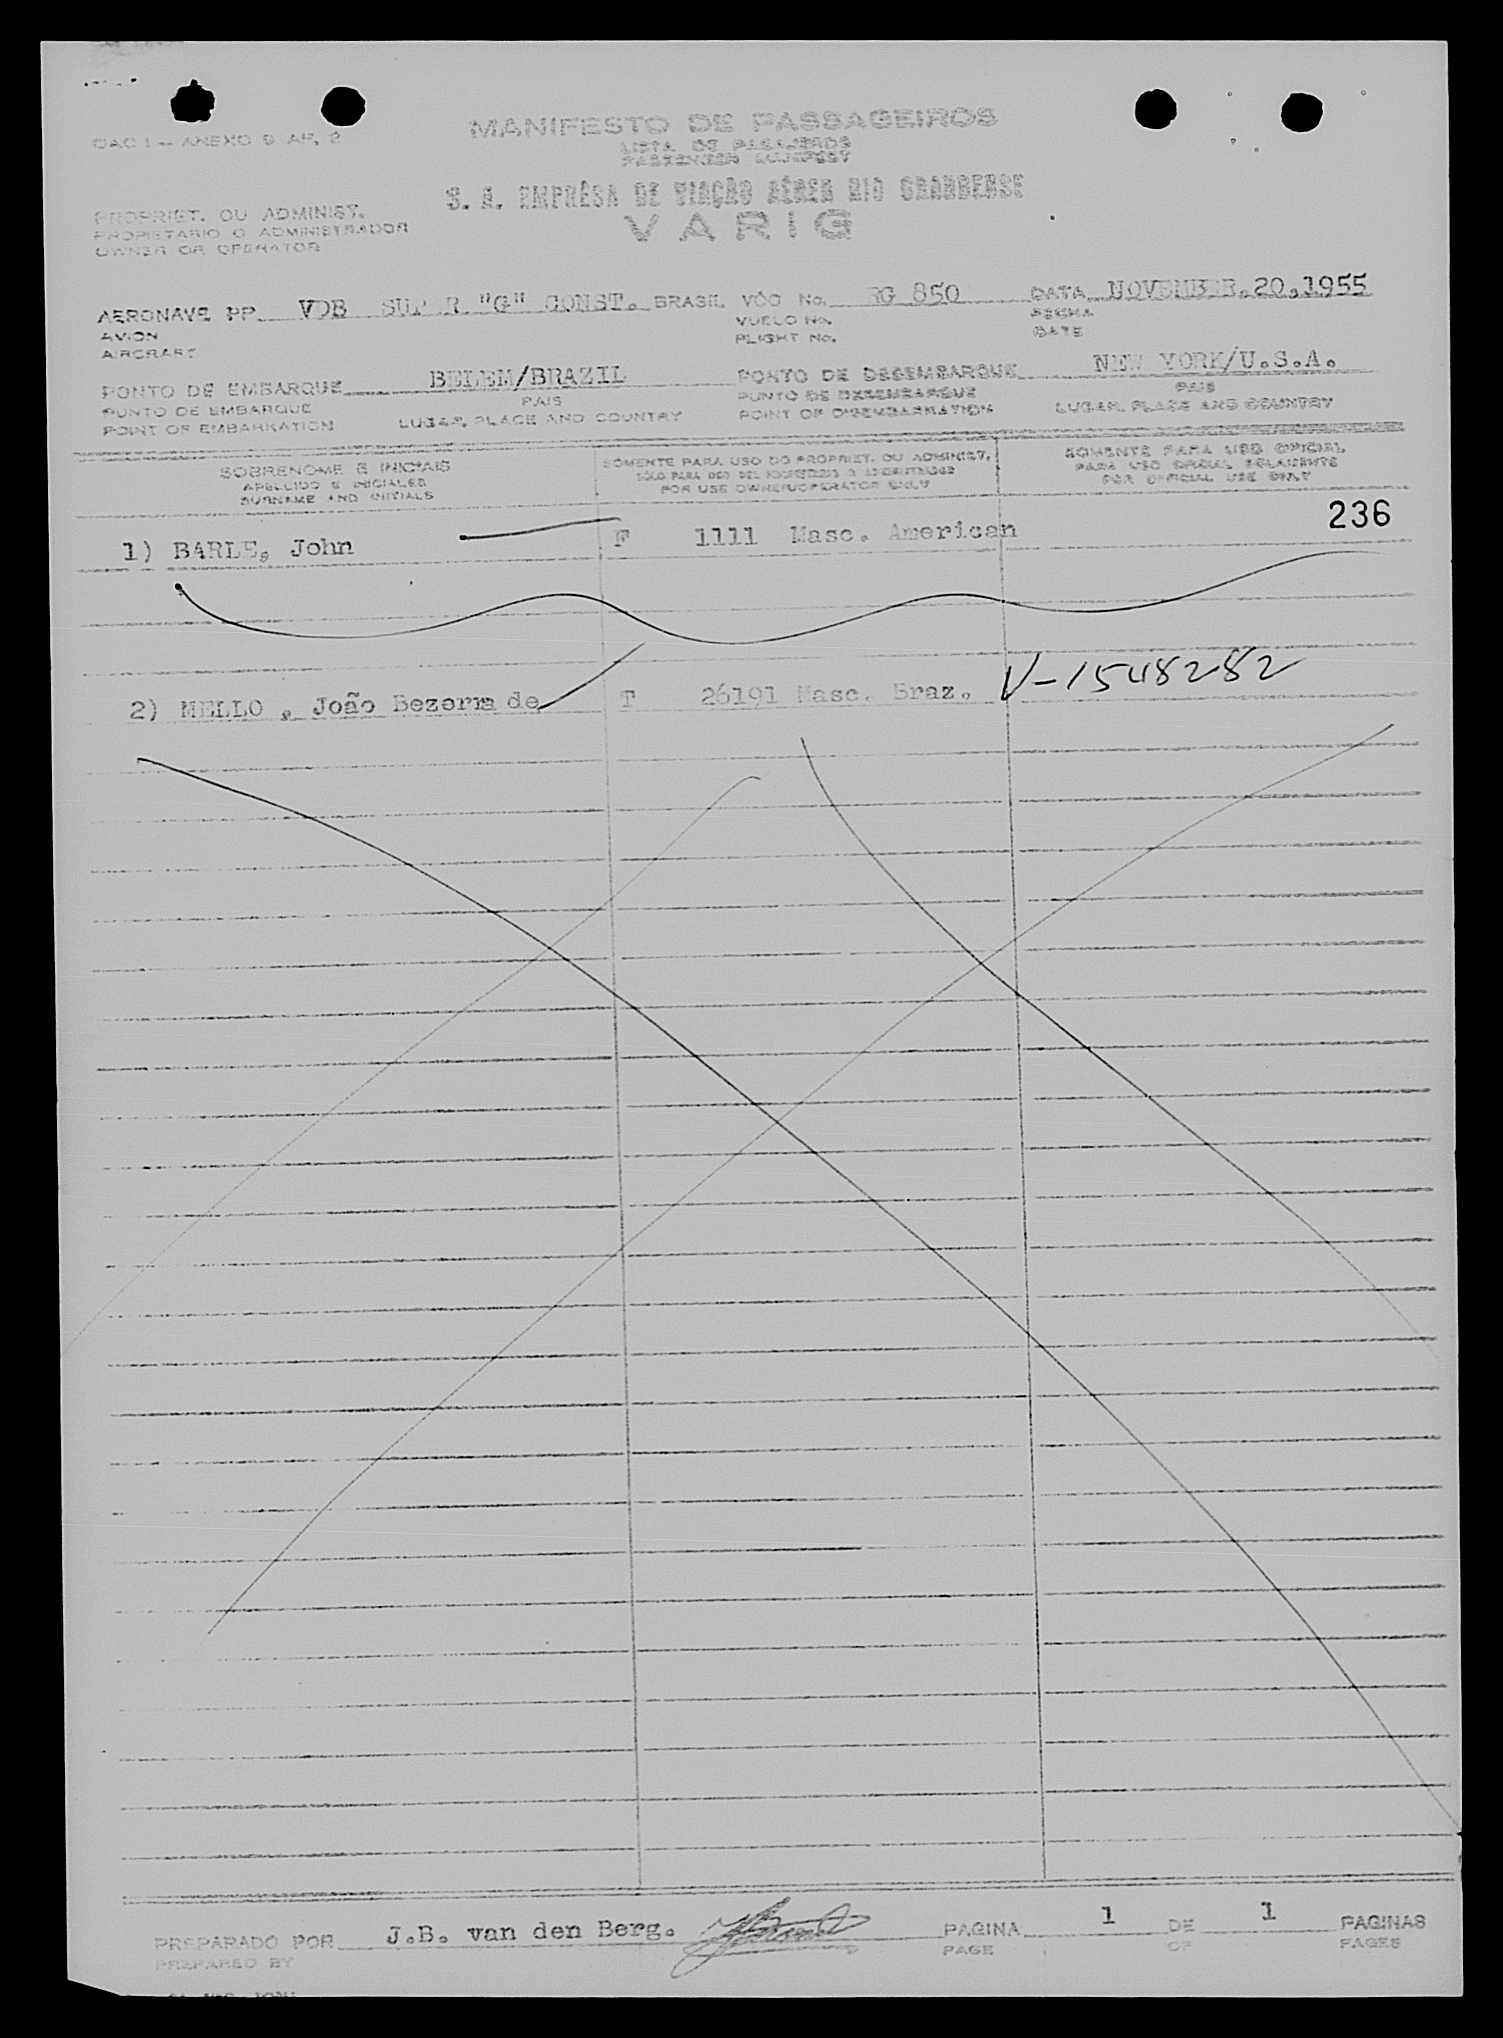 DAC 1 - ANEXO 9 AP. 2
MANIFESTO DE PASSAGEIROS
LISTA DE PASAJEROS
PASSENGER MANIFEST
S. A. EMPRÊSA DE VIAÇÃO AÉREA RIO GRANDENSE
VARIG
PROPRIET. OU ADMINIST.
PROPIETARIO O ADMINISTRADOR
OWNER OR OPERATOR
AERONAVE PP VDB SUPER "G" CONST. BRASIL VÔO No. RG 850 DATA NOVEMBER.20.1955
AVION VUELO No. FECHA
AIRCRAFT FLIGHT No. DATE
PONTO DE EMBARQUE BELEM/BRAZIL PONTO DE DESEMBARQUE NEW YORK/U.S.A.
PUNTO DE EMBARQUE PAIS PUNTO DE DESEMBARQUE PAIS
POINT OF EMBARKATION LUGAR, PLACE AND COUNTRY POINT OF DISEMBARKATION LUGAR, PLACE AND COUNTRY
SOBRENOME E INICIAIS SOMENTE PARA USO DO PROPRIET. OU ADMINIST. SOMENTE PARA USO OFICIAL
APELLIDO E INICIALES SOLO PARA USO DEL PROPIETARIO O ADMINISTRADOR PARA USO OFICIAL SOLAMENTE
SURNAME AND INITIALS FOR USE OWNER/OPERATOR ONLY FOR OFFICIAL USE ONLY
236
1) BARLE, John F 1111 Masc. American
2) MELLO , João Bezerra de F 26191 Masc. Braz. V-1548282
PREPARADO POR J.B. van den Berg. PAGINA 1 DE 1 PAGINAS
PREPARED BY PAGE OF PAGES